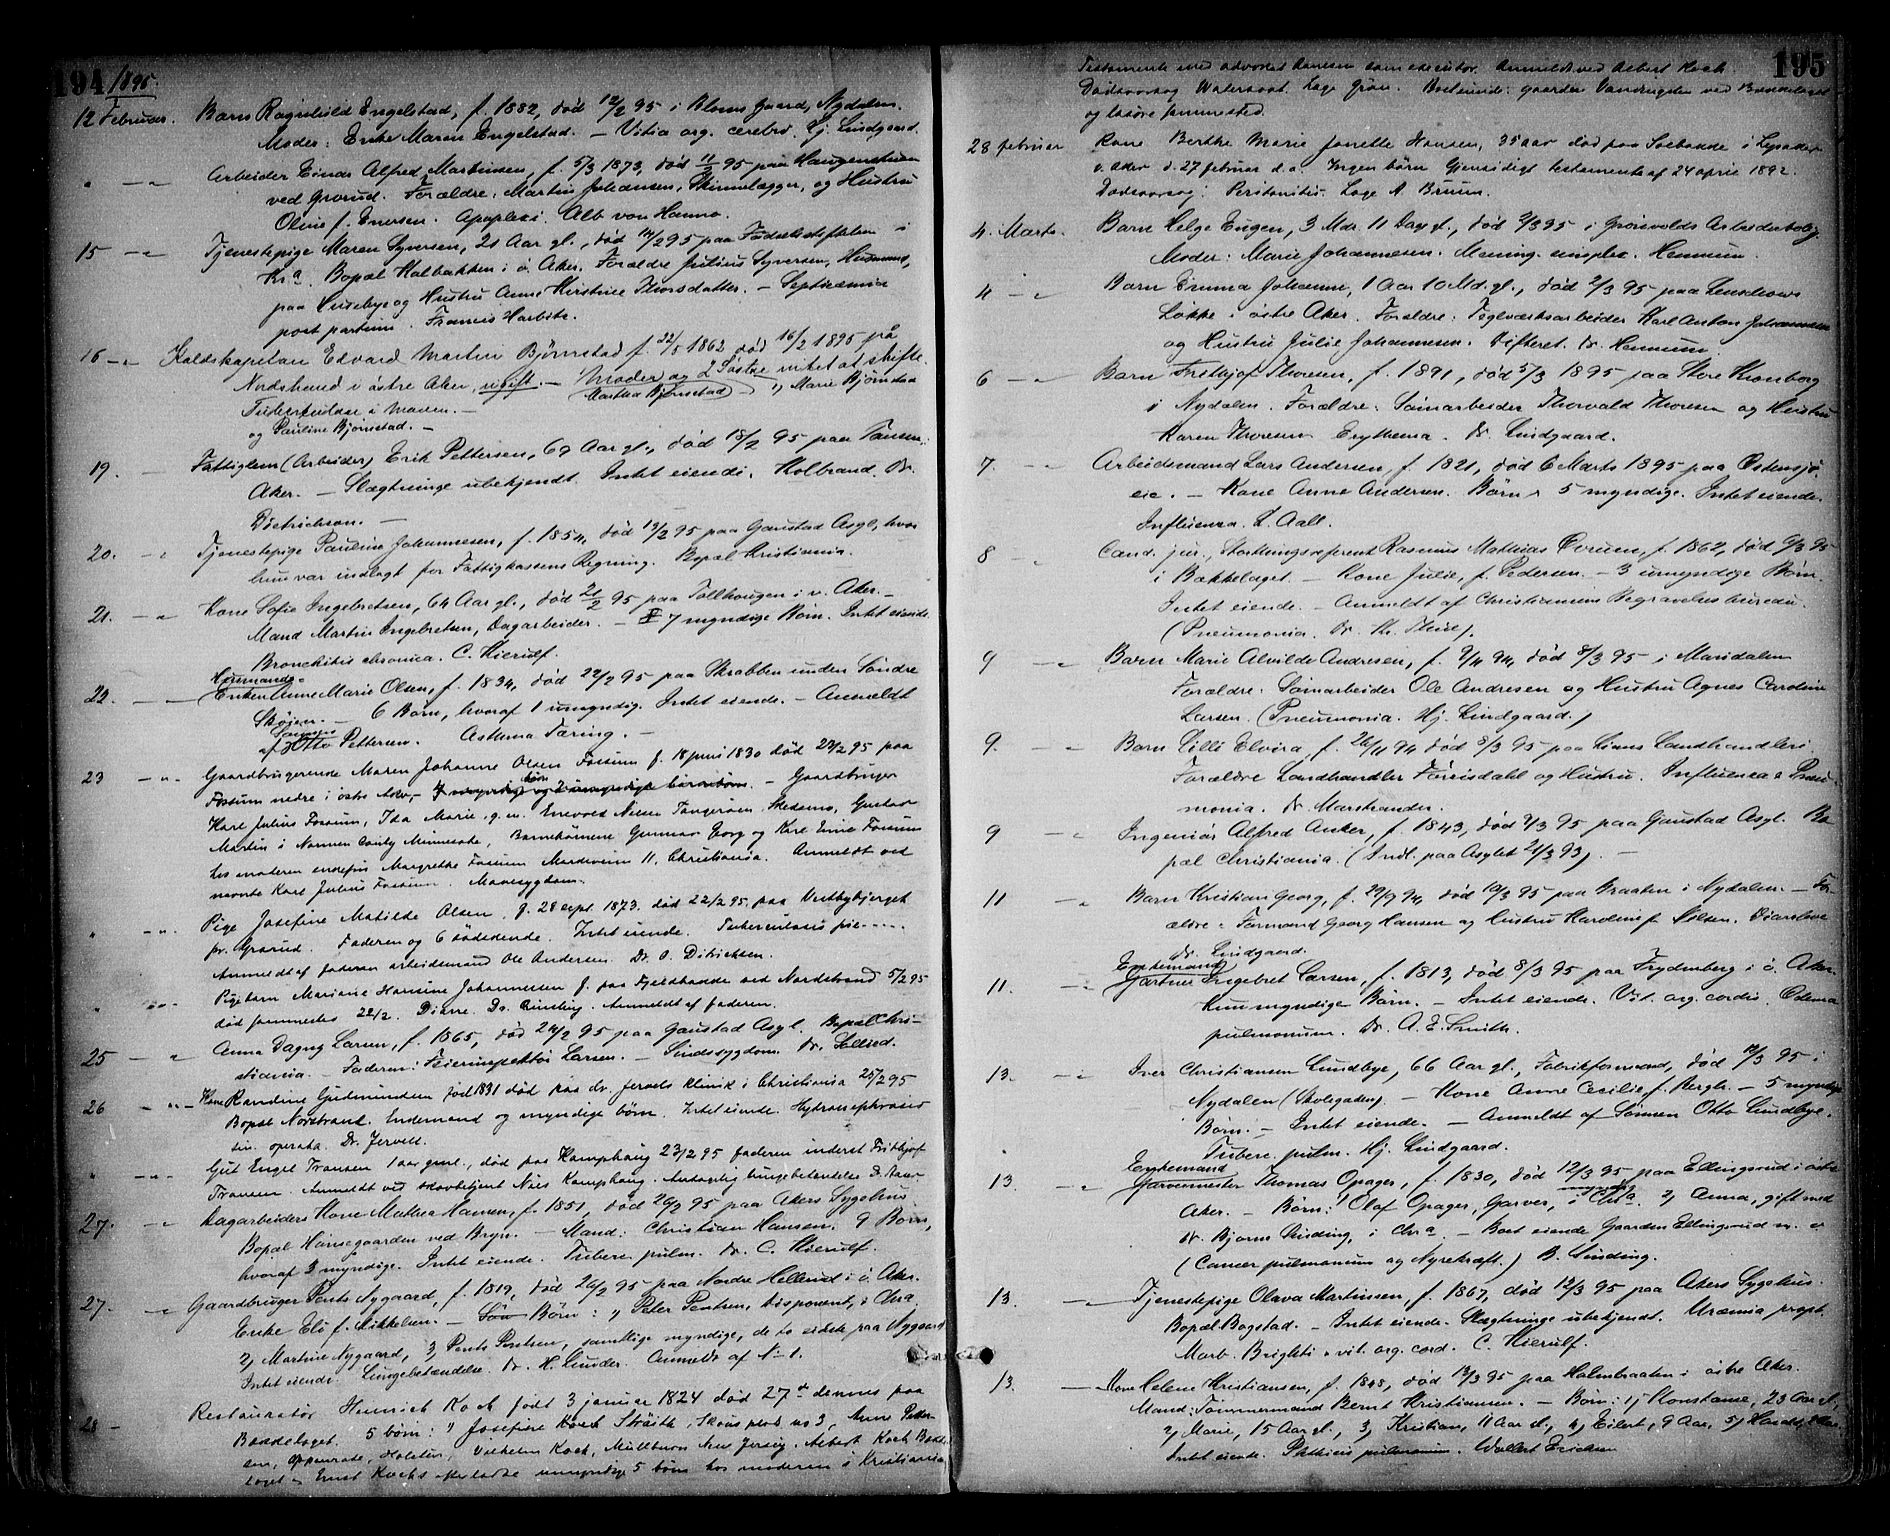 194 1895
12 Februar. Barn Ragnhild Engelstad, f. 1882, død 12/2 95 i Bloms Gaard, Nydalen.
Moder: Enke Maren Engelstad. — Vitia org. cerebri. Hj. Lindgaard.
" — " Arbeider Einar Alfred Martinsen, f. 5/3 1873, død 11/2 95 paa Haugenstuen
ved Grorud. Forældre: Martin Johansen, Skinnelægger, og Hustru
Oline f. Eversen. Apoplexi. Alb von Hanno.
15 — " Tjenestepige Maren Syversen, 21 Aar gl., død 14/2 95 paa Fødselsstiftelsen i
Kr.a. Bopæl Kalbakken i ø. Aker. Forældre Julius Syversen, Husmand,
paa Huseby og Hustru Anne Kirstine Thorsdatter. — Septicæmia
post partum. Francis Harbitz.
16 — " Kaldskapellan Edvard Martin Bjørnstad f. 22/5 1862 død 16/2 1895 på
Nordstrand i østre Aker, ugift. — Moder og 2 Søstre intet at skifte.
Martha Bjørnstad " Marie Bjørnstad
Tuberkulose i maven. —
og Pauline Bjørnstad. —
19. — Fattiglem (Arbeider) Erik Pettersen, 69 Aar gl., død 18/2 95 paa Tansen,
Aker. — Slægtninge ubekjendt. Intet eiende. Kolbrand. Dr.
Dietrichson. —
20. — " Tjenestepige Pauline Johannesen, f. 1854, død 19/2 95 paa Gaustad Asyl, hvor
hun var indlagt for Fattigkassens Regning. Bopæl Kristiania.
21. — " Kone Sofie Ingebretsen, 64 Aar gl., død 21/2 95 paa Tollhougen i v. Aker. —
Mand Martin Ingebretsen, Dagarbeider. — 7 myndige Børn. Intet eiende.
Bronchitis chronica. C. Hierulf.
Husmands-
22. — Enken Anne Marie Olsen, f. 1834, død 22/2 95 paa Skrabben under Søndre
Skøien. — 6 Børn, hvoraf 1 umyndig. Intet eiende. — Anmeldt
af Sønnen Otto Pettersen. Asthma Tæring. —
23 — " Gaardbrugerenke Maren Johanne Olsen Fossum f. 18 juni 1830 død 22/2 95 paa
Fossum nedre i østre Aker, — 4 myndige børn og 2 umyndige børnebørn. — Gaardbruger
Karl Julius Fossum, Ida Marie, g. m. Enevold Nilsen Tangerøen Skedsmo, Gustav
Martin i Norman County Minnesota, Barnebørnene Gunnar Georg og Karl Einar Fossum
hos moderen enkefru Margrethe Fossum Markveien 11, Christiania. Anmeldt ved
nævnte Karl Julius Fossum. Mavesygdom.
" — " Pige Josefine Matilde Olsen, f. 28 sept. 1873. død 22/2 95 paa Vestbybjerget
pr. Grorud. Faderen og 6 sødskende. Intet eiende. Tuberculosis
Anmeldt af faderen arbeidsmand Ole Andersen Dr. O. Ditrichsen.
" " Pigebarn Mariane Hansine Johannessen f. paa Fjeldbakke ved Nordstrand 5/2 95
død sammesteds 22/2. Diarre. Dr. Anmeldt af faderen.
25 — " Anna Dagny Larsen, f. 1865, død 24/2 95 paa Gaustad Asyl. Bopæl Chri-
stiania. — Faderen: Feierinspektør Larsen. — Sindssygdom. Dr. Selland.
26 — " — Kone Randine Gudmundsen født 1831 død paa dr. Jervells klinik i Christiania 25/2 95
Bopæl Nordstrand. Enkemand og myndige børn. Intet eiende. Hydronephrosis
sin. operata. Dr. Jervell.
" — " — Gut Engel Fransen 1 aar gml., død paa Kamphaug 23/2 95 faderen inderst Fritjof
Fransen. Anmeldt ved skovbetjent Nils Kamphaug. Antagelig lungebetændelse Dr. Aar
27. — " Dagarbeiders Kone Mathea Hansen, f. 1851, død 26/2 95 paa Akers Sygehus
Bopæl Hansegaarden ved Bryn. — Mand: Christian Hansen. 9 Børn,
hvoraf 3 myndige. Intet eiende. Tuberc. pulm. Dr. C. Hierulf.
27. — " Gaardbruger Pents Nygaard, f. 1819, død 26/2 95 paa Nordre Hellerud i ø. Aker.
Enke Eli f. Mikkelsen. — Søn Børn: 1) Peter Pentsen, disponent, i Chra
2) Martine Nygaard, 3) Pents Pentsen, samtlige myndige, de to sidste paa Nygaard
Intet eiende. Lungebetændelse. Dr. H. Gunder. Anmeldt af No 1.
28 — Restauratør Heinrich Koch født 3 januar 1824 død 27de dennes paa
Bækkelaget. 5 børn: 1) Josefine Koch Skous plads no 3, Anne Peder-
sen, Appenrade, Holsten, Vilhelm Koch, Millburn New Jersey. Albert Koch Bække-
laget. Ernst Kochs efterladte umyndige 5 børn hos moderen i Kristiania
195
Testamente med advokat som executor. Anmeldt ved Albert Koch
Dødsaarsag Watersoot. Læge Grön. Boet eiende: gaarden Vandrigelen ved Bækkelaget
og løsøre sammested.
28 februar Kone Berthe Marie Janette Hansen, 35 aar død paa Solbakke i Lysaker
v. Aker d. 27 februar d.a. Ingen børn. Gjensidigt testamente af 24 april 1892.
Dødsaarsag: Peritonitis. Læge A. Bruun.
4. Marts. Barn Helge Eugen, 3 Mdr. 11 Dag gl., død 2/3 95 i Grønvolds Arbeiderbolig.
Moder: Marie Johannesen. Mening. simplex. Hemmum.
4 — " Barn Emma Johanne, 1 Aar 10 Md. gl., død 2/3 95 paa Lenschows
Løkke i østre Aker. Forældre: Teglværksarbeider Karl Anton Johannesen
og Hustru Julie Johannesen. Difteret. Dr. Hemmum.
6 — " Barn Fridtjof Thoresen, f. 1891, død 5/3 1895 paa Store Kronborg
i Nydalen. Forældre: Sømarbeider Thorvald Thoresen og Hustru
Karen Thoresen. Erythema. Dr. Lindgaard.
7. — " Arbeidsmand Lars Andersen, f. 1821, død 6 Marts 1895 paa Østensjø
eie. — Kone Anne Andersen. Børn 5 myndige. Intet eiende.
Influenza. L. Aall.
8 — Cand. jur., Storthingsreferent Rasmus Mathias Evensen, f. 1862, død 6/3 95
i Bækkelaget. — Kone Julie, f. Pedersen. — 3 umyndige Børn.
Intet eiende. — Anmeldt af Christiansens Begravelsesbureau.
(Pneumonia. Dr. Th. Thiis).
9 — " Barn Marie Alvilde Andresen, f. 9/11 94, død 8/3 95 i Maridalen
Forældre: Sømarbeider Ole Andresen og Hustru Agnes Caroline
Larsen. (Pneumonia. Hj. Lindgaard.)
9. — " Barn Lilli Elvira, f. 26/11 94 død 8/3 95 paa Lians Landhandleri.
Forældre Landhandler Førrisdahl og Hustru. Influenza & Pneu-
monia. Dr. Marstrander.
9 — " Ingeniør Alfred Anker, f. 1843, død 7/3 95 paa Gaustad Asyl. Bo-
pæl Christiania. (Indl. paa Asylet 21/3 93). —
11 — " Barn Kristian Georg, f. 29/9 94, død 10/3 95 paa Braaten i Nydalen. — For-
ældre: Formand Georg Hansen og Hustru Karoline f. Nilsen. Diarrhoe
Dr. Lindgaard.
Enkemand
11. — " Gartner Engebret Larsen, f. 1813, død 8/3 95 paa Frydenberg i ø. Aker.
Kun myndige Børn. — Intet eiende. Vit. org. cordis. Ødema
pulmonum. Dr. A. E. Smith.
13. — " Iver Christiansen Lundbye, 66 Aar gl., Fabrikformand, død 12/3 95 i
Nydalen (Skolegaden). — Kone Anne Cecilie f. Bergh. — 5 myndige
Børn. — Intet eiende. — Anmeldt af Sønnen Otto Lundbye.
Tuberc. pulm. Hj. Lindgaard.
Enkemand
13. — " Garvermester Thomas Opager, f. 1830, død 12/3 95 paa Ellingsrud i østre
Aker. — Børn: 1) Olaf Opager, Garver, myndig i Chr.a. 2) Anna, gift med
Dr. Bjørn Sinding, i Chr.a — Boet eiende Gaarden Ellingsrud m. v
(Cancer pulmonum og Nyrekræft.) B. Sinding.
13. — " Tjenestepige Olava Martinsen, f. 1867, død 12/3 95 paa Akers Sygehus.
Bopæl Bogstad. — Intet eiende. Slægtninge ubekjendt. Uræmia propt.
Morb. Brightii & vit. org. cord. C. Hierulf.
13. — Kone Helene Kristiansen, f. 1848, død 12/3 95 paa Holmbraaten i østre Aker.
Mand: Tømmermand Bernt Kristiansen. — Børn: 1) Konstanse, 23 Aar gl.,
2) Marie, 15 Aar gl., 3) Kristian, 11 Aar gl., 4) Eilert, 9 Aar, 5) Harald,
Intet eiende. Phthisis pulmonum. Wollert Erichsen